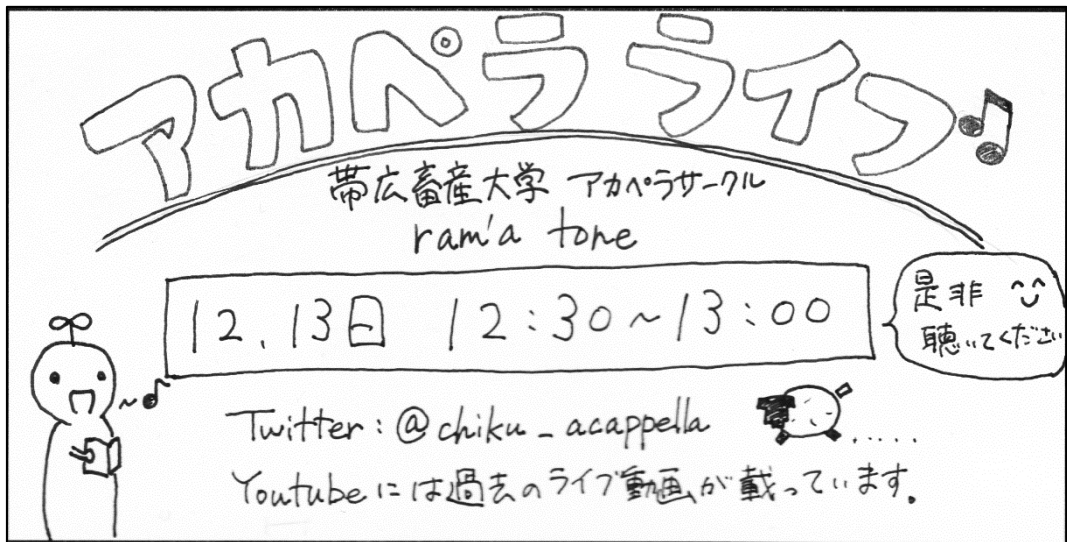 アカペラライブ♪
帯広畜産大学 アカペラサークル
ram'a tone
12.13日 12:30~13:00
是非
聴いてください
Twitter:@chiku_acappella
Youtubeには過去のライブ動画が載っています。